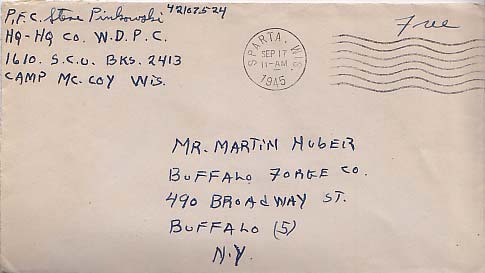 P.F.C. Steve Pinkowski 42107524
HQ-HQ CO. W.D.P.C.
1610. S.C.U. BKS. 2413
CAMP MC.COY WIS.
SPARTA, WIS.
SEP 17
11-AM
1945
Free
MR. MARTIN HUBER
BUFFALO FORGE CO.
490 BROADWAY ST.
BUFFALO (5)
N.Y.